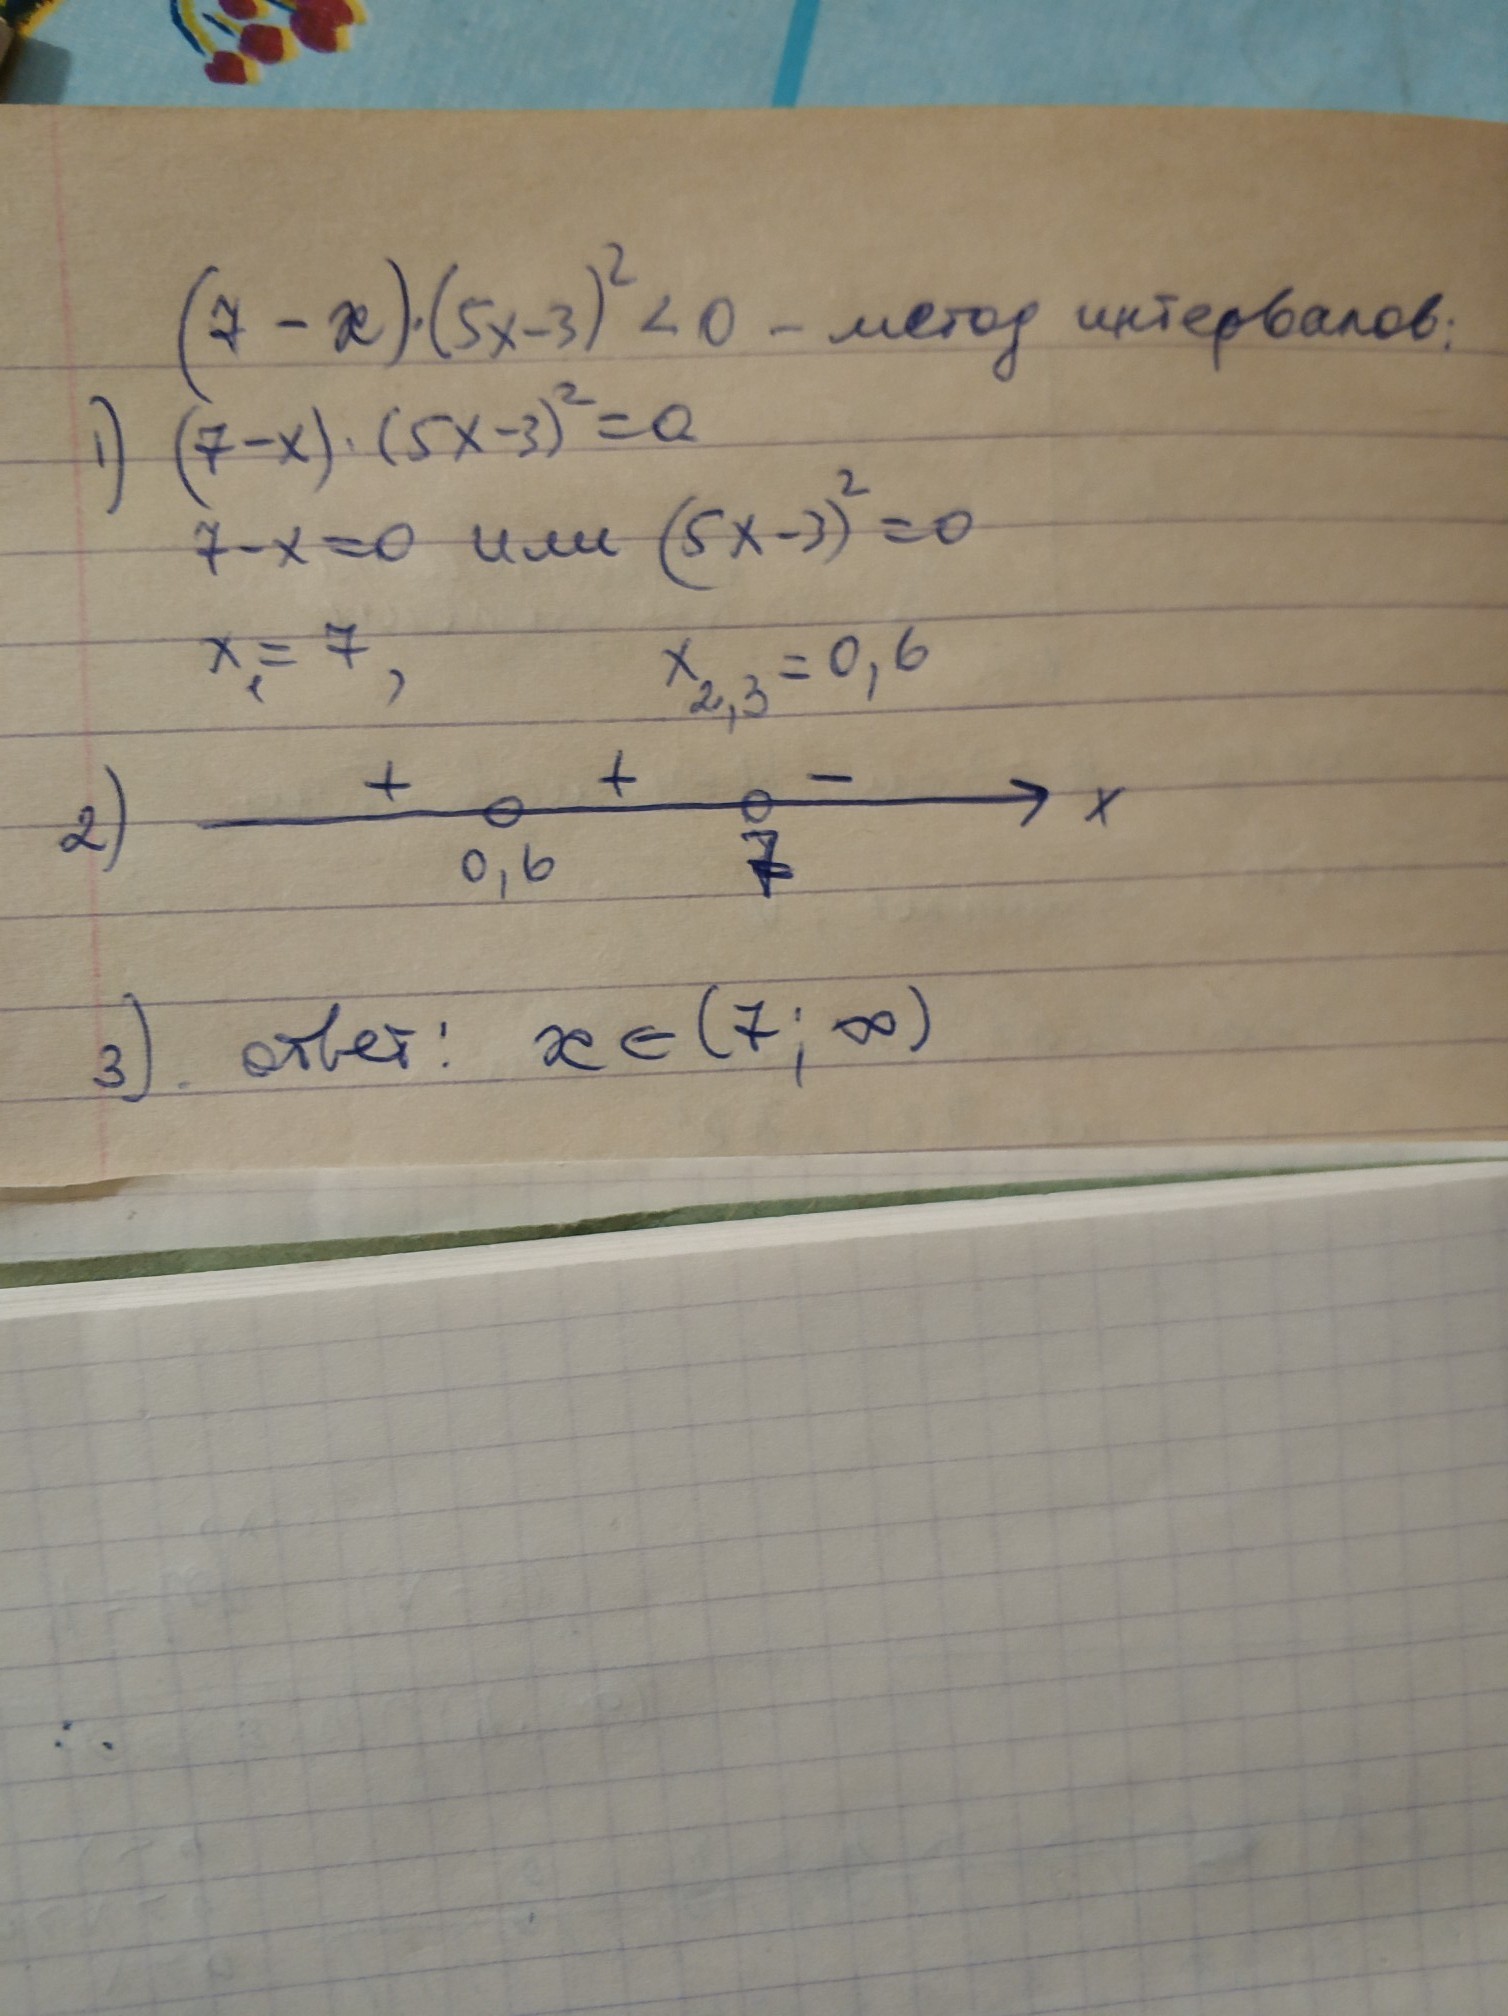 (7 - x)·(5x-3)² < 0 - метод интервалов:
1) (7-x)·(5x-3)² = 0
7-x=0 или (5x-3)² = 0
x₁ = 7, x₂,₃ = 0,6
2) + + - x
0,6 7
3). ответ: x ∈ (7; ∞)